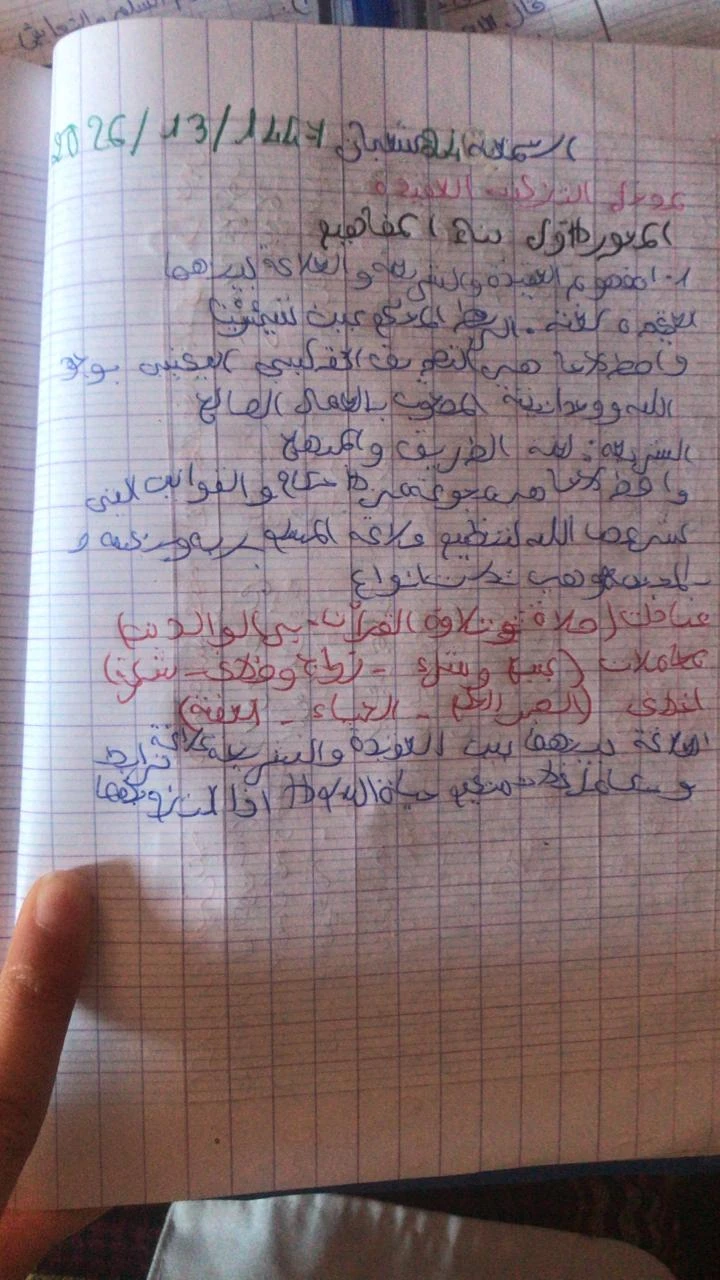 الثلاثاء 24 شعبان 1447/13/2026
مدخل التزكية العقيدة
المحور الأول بناء المفاهيم
1- مفهوم العقيدة والشريعة والعلاقة بينهما
العقيدة لغة: الربط المحكم
واصطلاحا هي التصديق اليقيني بوجود
الله ووحدانيته المصحوب بالعمل الصالح
الشريعة: لغة الطريق والمنهاج
واصطلاحا هي مجموعة من الأحكام والقوانين التي
شرعها الله لتنظيم علاقة المسلم بربه ونفسه و
المجتمع وهي ثلاث أنواع
عبادات (صلاة وتلاوة القرآن - بر الوالدين)
معاملات (بيع وشراء - زواج وطلاق - شركة)
أخلاق (الصبر - الحياء - العفة)
العلاقة بينهما بين العقيدة والشريعة علاقة ترابط
وتكامل حياة